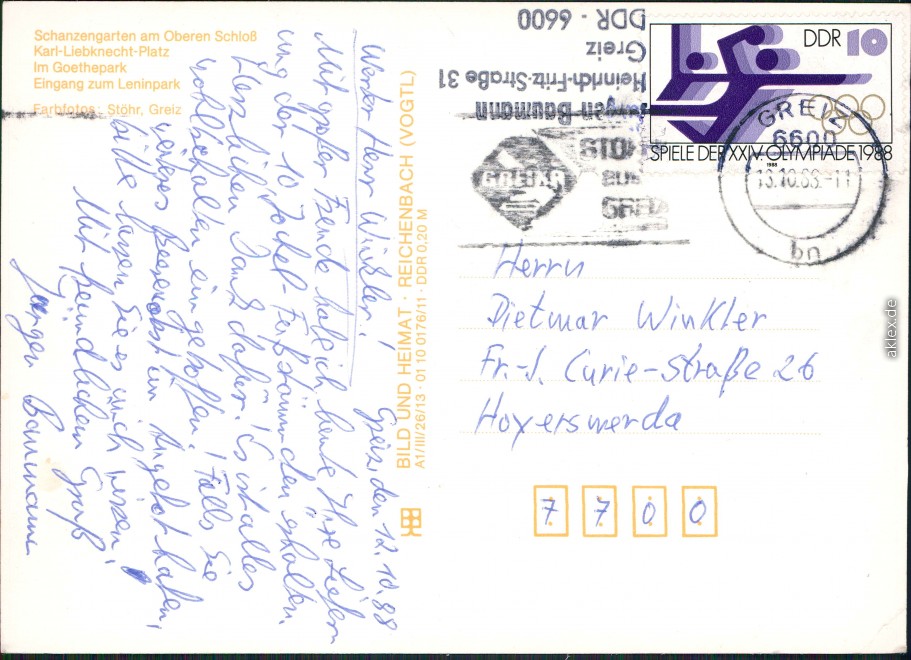 Schanzengarten am Oberen Schloß
Karl-Liebknecht-Platz
Im Goethepark
Eingang zum Leninpark
Farbfotos: Stöhr, Greiz
BILD UND HEIMAT · REICHENBACH (VOGTL)
A1/III/26/13 · 01 10 0176/11 · DDR 0,20 M
Greiz, den 12.10.88
Werter Herr Winkler!
Mit großer Freude habe ich heute Ihre
und der 10 erhalten.
Herzlichen Dank dafür. Es ist alles
wohlbehalten eingetroffen. Falls Sie
wieder im Angebot haben,
bitte lassen Sie es mich wissen.
Mit freundlichem Gruß
Jürgen Baumann
Jürgen Baumann
Heinrich-Fritz-Straße 31
Greiz
DDR - 6600
DDR 10
SPIELE DER XXIV. OLYMPIADE 1988
1988
GREIZ
6600
13.10.88.-11
bn
Herrn
Dietmar Winkler
Fr.-J. Curie-Straße 26
Hoyerswerda
7 7 0 0
aklex.de